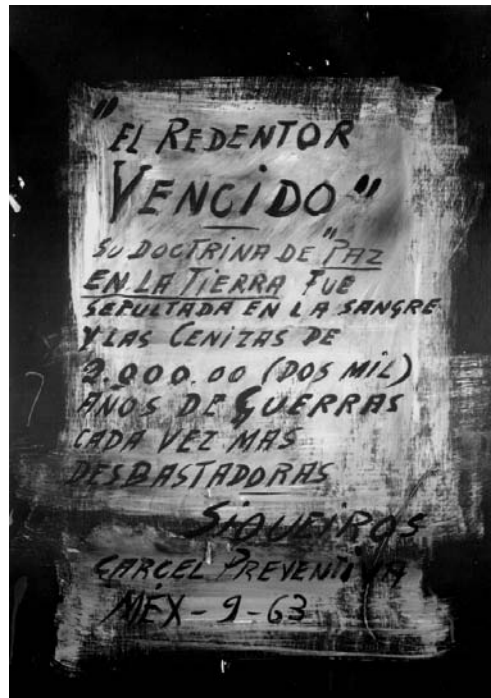 "EL REDENTOR
VENCIDO"
SU DOCTRINA DE "PAZ
EN LA TIERRA FUE
SEPULTADA EN LA SANGRE
Y LAS CENIZAS DE
2.000.00 (DOS MIL)
AÑOS DE GUERRAS
CADA VEZ MAS
DESBASTADORAS
SIQUEIROS
CARCEL PREVENTIVA
MÉX - 9 - 63